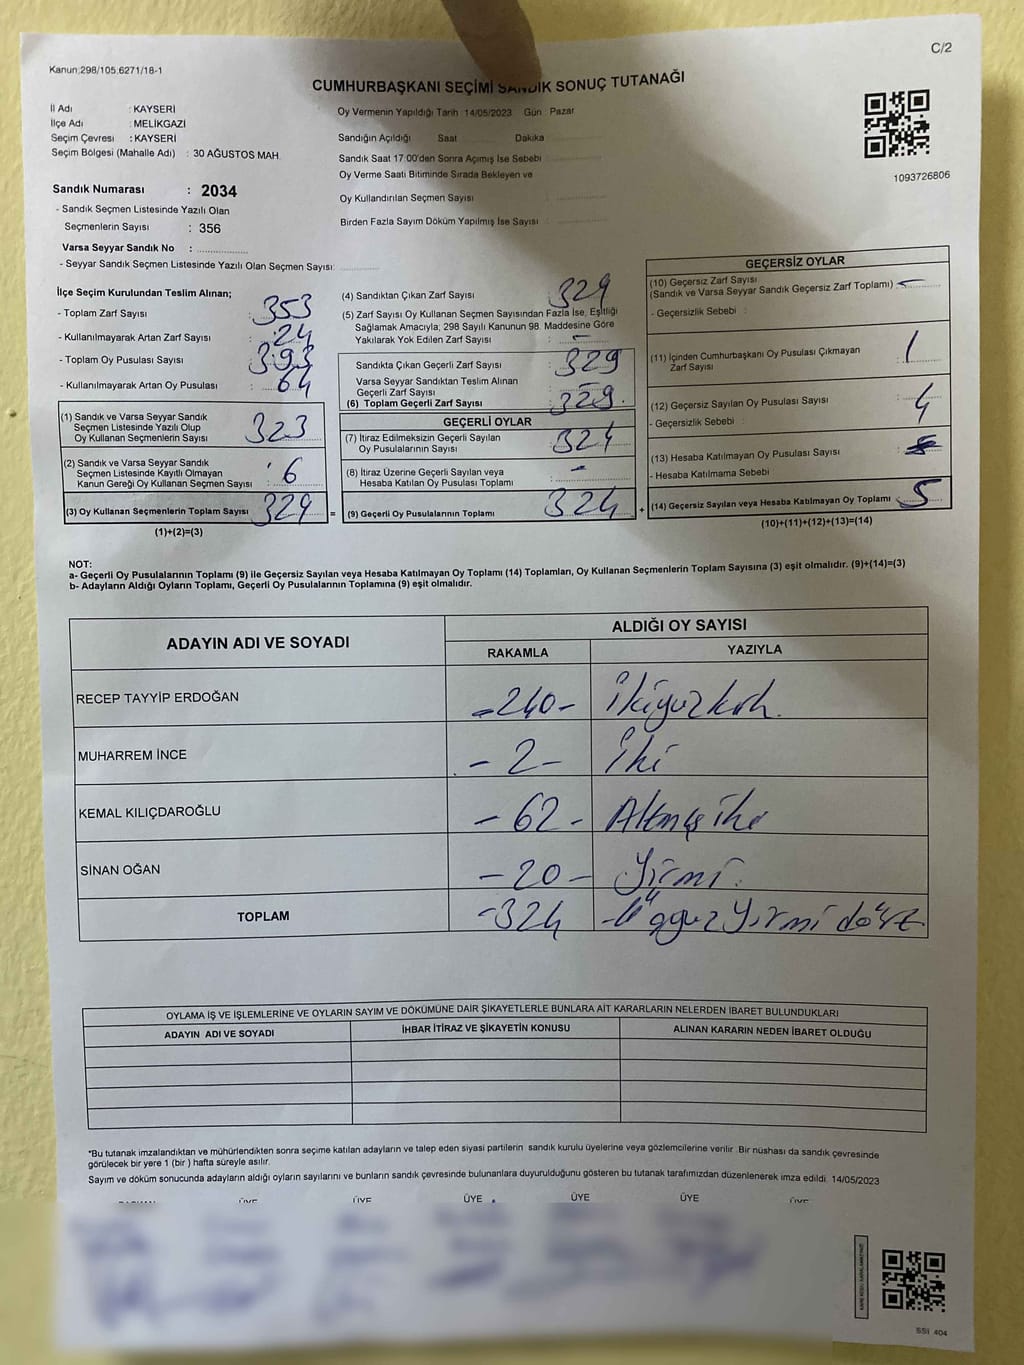 C/2
Kanun:298/105.6271/18-1
CUMHURBAŞKANI SEÇİMİ SANDIK SONUÇ TUTANAĞI
İl Adı : KAYSERİ
İlçe Adı : MELİKGAZİ
Seçim Çevresi : KAYSERİ
Seçim Bölgesi (Mahalle Adı) : 30 AĞUSTOS MAH.
Oy Vermenin Yapıldığı Tarih :14/05/2023 Gün : Pazar
Sandığın Açıldığı Saat Dakika
Sandık Saat 17:00'den Sonra Açımış İse Sebebi
Oy Verme Saati Bitiminde Sırada Bekleyen ve
Oy Kullandırılan Seçmen Sayısı :
Birden Fazla Sayım Döküm Yapılmış İse Sayısı :
1093726806
Sandık Numarası : 2034
- Sandık Seçmen Listesinde Yazılı Olan
Seçmenlerin Sayısı : 356
Varsa Seyyar Sandık No :
- Seyyar Sandık Seçmen Listesinde Yazılı Olan Seçmen Sayısı:
İlçe Seçim Kurulundan Teslim Alınan;
- Toplam Zarf Sayısı : 353
- Kullanılmayarak Artan Zarf Sayısı : 24
- Toplam Oy Pusulası Sayısı : 393
- Kullanılmayarak Artan Oy Pusulası : 64
(1) Sandık ve Varsa Seyyar Sandık
Seçmen Listesinde Yazılı Olup
Oy Kullanan Seçmenlerin Sayısı : 323
(2) Sandık ve Varsa Seyyar Sandık
Seçmen Listesinde Kayıtlı Olmayan
Kanun Gereği Oy Kullanan Seçmen Sayısı : 6
(3) Oy Kullanan Seçmenlerin Toplam Sayısı 329 =
(1)+(2)=(3)
(4) Sandıktan Çıkan Zarf Sayısı : 329
(5) Zarf Sayısı Oy Kullanan Seçmen Sayısından Fazla İse, Eşitliği
Sağlamak Amacıyla; 298 Sayılı Kanunun 98. Maddesine Göre
Yakılarak Yok Edilen Zarf Sayısı : -
Sandıkta Çıkan Geçerli Zarf Sayısı : 329
Varsa Seyyar Sandıktan Teslim Alınan
Geçerli Zarf Sayısı : -
(6) Toplam Geçerli Zarf Sayısı : 329.
GEÇERLİ OYLAR
(7) İtiraz Edilmeksizin Geçerli Sayılan
Oy Pusulalarının Sayısı : 324
(8) İtiraz Üzerine Geçerli Sayılan veya
Hesaba Katılan Oy Pusulası Toplamı : -
(9) Geçerli Oy Pusulalarının Toplamı 324 +
GEÇERSİZ OYLAR
(10) Geçersiz Zarf Sayısı
(Sandık ve Varsa Seyyar Sandık Geçersiz Zarf Toplamı) -
- Geçersizlik Sebebi :
(11) İçinden Cumhurbaşkanı Oy Pusulası Çıkmayan
Zarf Sayısı : 1
(12) Geçersiz Sayılan Oy Pusulası Sayısı : 4
- Geçersizlik Sebebi :
(13) Hesaba Katılmayan Oy Pusulası Sayısı :
- Hesaba Katılmama Sebebi
(14) Geçersiz Sayılan veya Hesaba Katılmayan Oy Toplamı : 5
(10)+(11)+(12)+(13)=(14)
NOT:
a- Geçerli Oy Pusulalarının Toplamı (9) ile Geçersiz Sayılan veya Hesaba Katılmayan Oy Toplamı (14) Toplamları, Oy Kullanan Seçmenlerin Toplam Sayısına (3) eşit olmalıdır. (9)+(14)=(3)
b- Adayların Aldığı Oyların Toplamı, Geçerli Oy Pusulalarının Toplamına (9) eşit olmalıdır.
ADAYIN ADI VE SOYADI
ALDIĞI OY SAYISI
RAKAMLA YAZIYLA
RECEP TAYYİP ERDOĞAN -240- İkiyüzkırk.
MUHARREM İNCE -2- İki
KEMAL KILIÇDAROĞLU -62- Altmış iki
SİNAN OĞAN -20- Yirmi.
TOPLAM -324 -Üçyüz Yirmi dört
OYLAMA İŞ VE İŞLEMLERİNE VE OYLARIN SAYIM VE DÖKÜMÜNE DAİR ŞİKAYETLERLE BUNLARA AİT KARARLARIN NELERDEN İBARET BULUNDUKLARI
ADAYIN ADI VE SOYADI İHBAR İTİRAZ VE ŞİKAYETİN KONUSU ALINAN KARARIN NEDEN İBARET OLDUĞU
*Bu tutanak imzalandıktan ve mühürlendikten sonra seçime katılan adayların ve talep eden siyasi partilerin sandık kurulu üyelerine veya gözlemcilerine verilir. Bir nüshası da sandık çevresinde
görülecek bir yere 1 (bir ) hafta süreyle asılır.
Sayım ve döküm sonucunda adayların aldığı oyların sayılarını ve bunların sandık çevresinde bulunanlara duyurulduğunu gösteren bu tutanak tarafımızdan düzenlenerek imza edildi. 14/05/2023
ÜYE ÜYE ÜYE ÜYE ÜYE ÜYE
SSİ 404